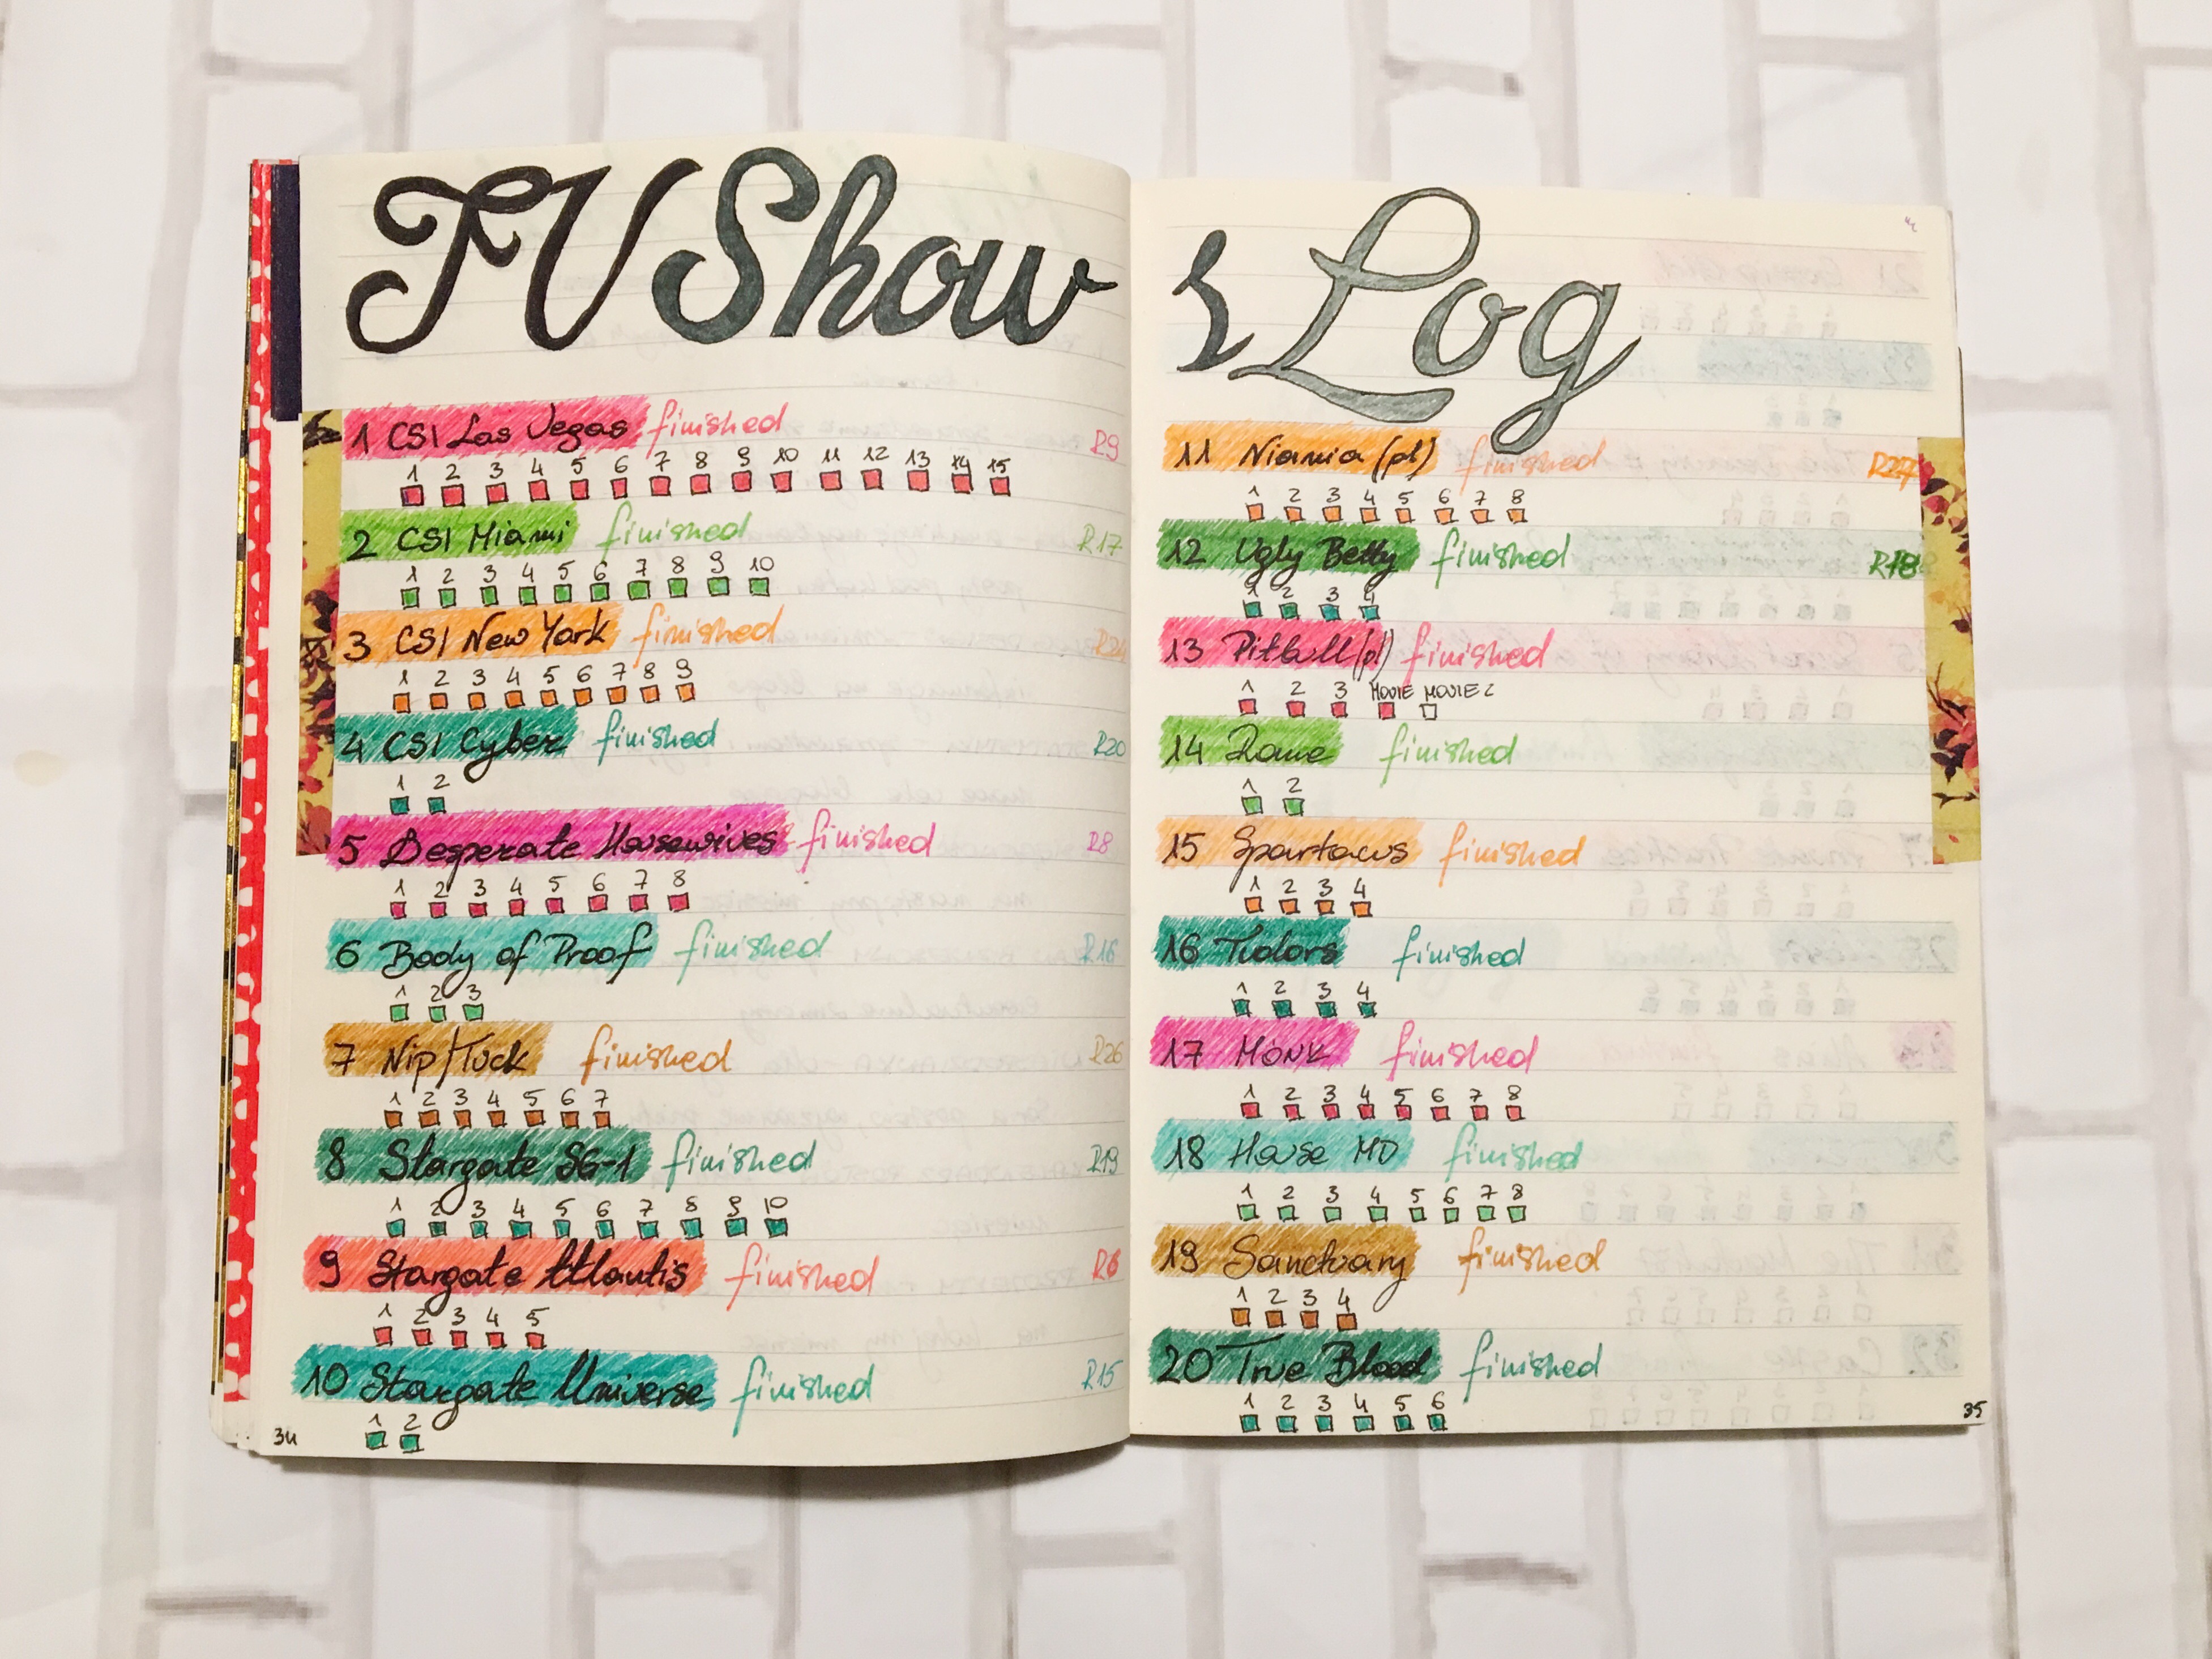 TV Show
1 CSI Las Vegas finished R9
1 2 3 4 5 6 7 8 9 10 11 12 13 14 15
2 CSI Miami finished R17
1 2 3 4 5 6 7 8 9 10
3 CSI New York finished R21
1 2 3 4 5 6 7 8 9
4 CSI Cyber finished R20
1 2
5 Desperate Housewives finished R8
1 2 3 4 5 6 7 8
6 Body of Proof finished R16
1 2 3
7 Nip/Tuck finished R26
1 2 3 4 5 6 7
8 Stargate SG-1 finished R19
1 2 3 4 5 6 7 8 9 10
9 Stargate Atlantis finished R6
1 2 3 4 5
10 Stargate Universe finished R15
1 2
34
s Log
11 Niania (pl) finished R27
1 2 3 4 5 6 7 8
12 Ugly Betty finished R18
1 2 3 4
13 Pitbull (pl) finished
1 2 3 MOVIE MOVIE 2
14 Rome finished
1 2
15 Spartacus finished
1 2 3 4
16 Tudors finished
1 2 3 4
17 MONK finished
1 2 3 4 5 6 7 8
18 House MD finished
1 2 3 4 5 6 7 8
19 Sanctuary finished
1 2 3 4
20 True Blood finished
1 2 3 4 5 6
35